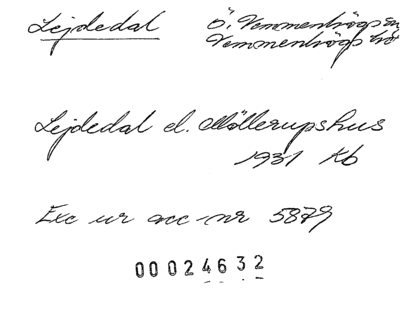 Lejdedal Ö. Vemmenhögs
Vemmenhögs
Lejdedal el. Möllerupshus
1931 Kb
Exc ur acc-nr 5879
00024632